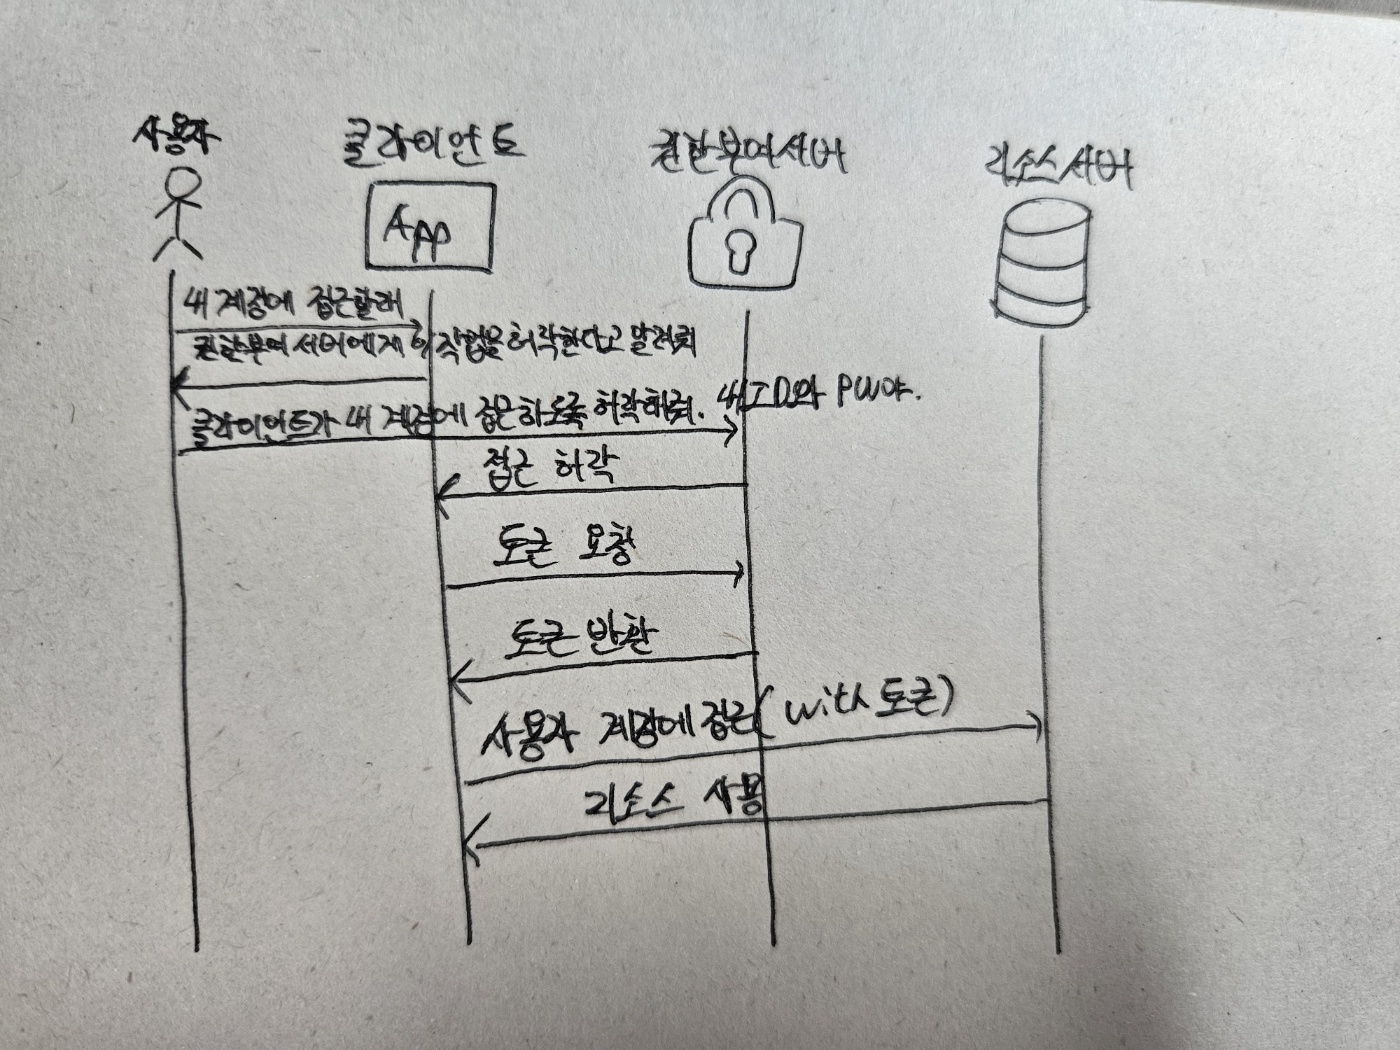 사용자
클라이언트
권한부여서버
리소스서버
App
내 계정에 접근할래
권한부여 서버에게 이 작업을 허락한다고 말해줘
클라이언트가 내 계정에 접근하도록 허락해줘. 내 ID와 PW야.
접근 허락
토큰 요청
토큰 반환
사용자 계정에 접근(with 토큰)
리소스 사용